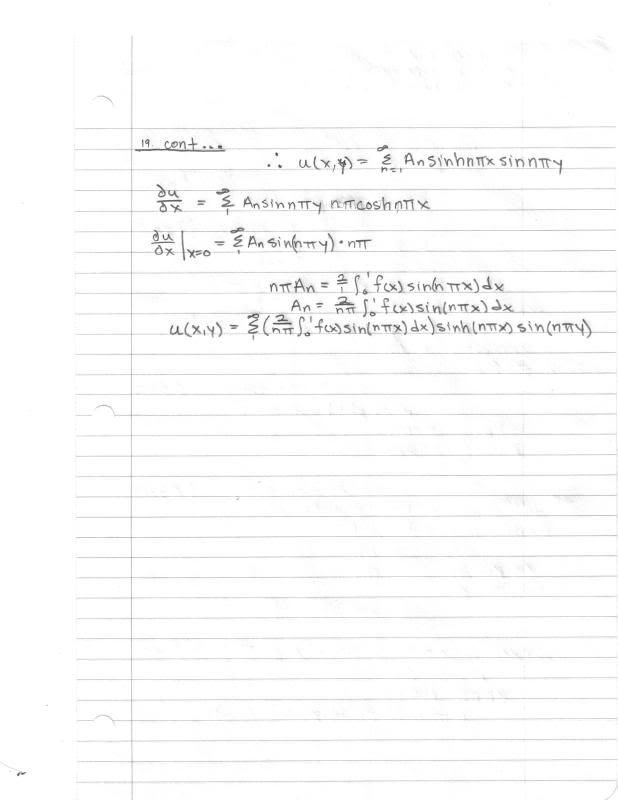 19. cont...
∴ u(x,y) = ∞Σn=1 An sinhnπx sinnπy
∂u/∂x = ∞Σ1 An sinnπy nπcoshnπx
∂u/∂x |x=0 = ∞Σ1 An sin(nπy)·nπ
nπAn = 2/1 ∫0^1 f(x) sin(nπx)dx
An = 2/nπ ∫0^1 f(x) sin(nπx)dx
u(x,y) = ∞Σ1 (2/nπ ∫0^1 f(x) sin(nπx)dx) sinh(nπx) sin(nπy)